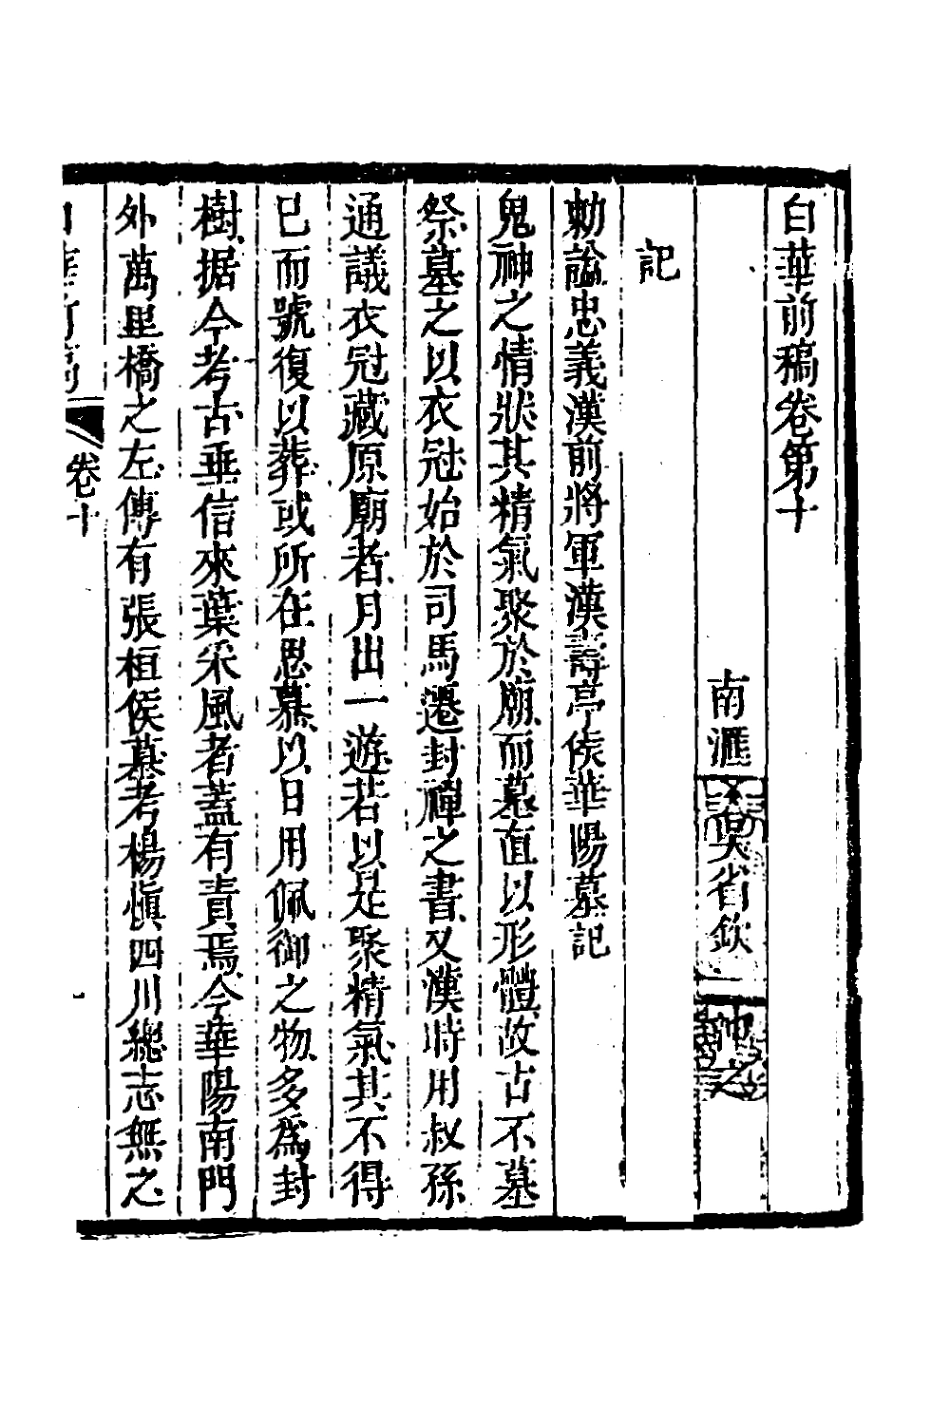 白華前稿卷第十
南滙吳省欽沖之
記
勅諡忠義漢前將軍漢壽亭侯華陽墓記
鬼神之情狀其精氣聚於廟而墓直以形體故古不墓
祭墓之以衣冠始於司馬遷封禪之書又漢時用叔孫
通議衣冠藏原廟者月出一遊若以是聚精氣其不得
已而號復以葬或所在思慕以日用佩御之物多爲封
樹据今考古垂信來葉采風者蓋有責焉今華陽南門
外萬里橋之左傳有張桓侯墓考楊愼四川總志無之
白華前稿 卷十